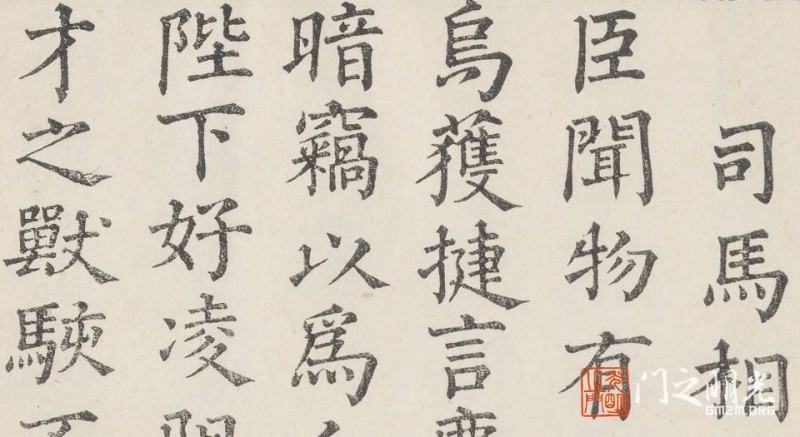 司馬相
臣聞物有
烏獲捷言
暗竊以爲
陛下好凌
才之獸駭不
光明之门